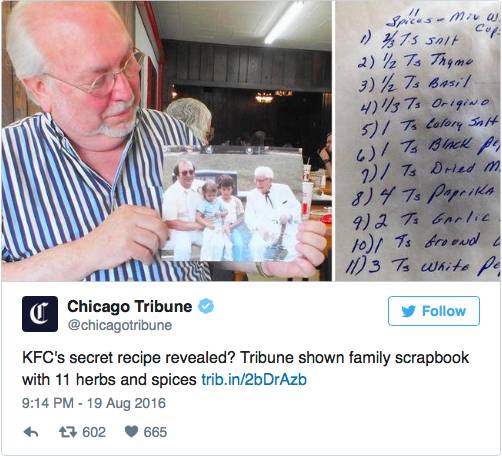 11
Spices - Mix W
Cup
1) 2/3 Ts Salt
2) 1/2 Ts Thyme
3) 1/2 Ts Basil
4) 1/3 Ts Origino
5) 1 Ts Celery Salt
6) 1 Ts Black Pe
7) 1 Ts Dried M
8) 4 Ts Paprika
9) 2 Ts Garlic
10) 1 Ts Ground
11) 3 Ts White Pe
Chicago Tribune
@chicagotribune
Follow
KFC's secret recipe revealed? Tribune shown family scrapbook
with 11 herbs and spices trib.in/2bDrAzb
9:14 PM - 19 Aug 2016
602 665